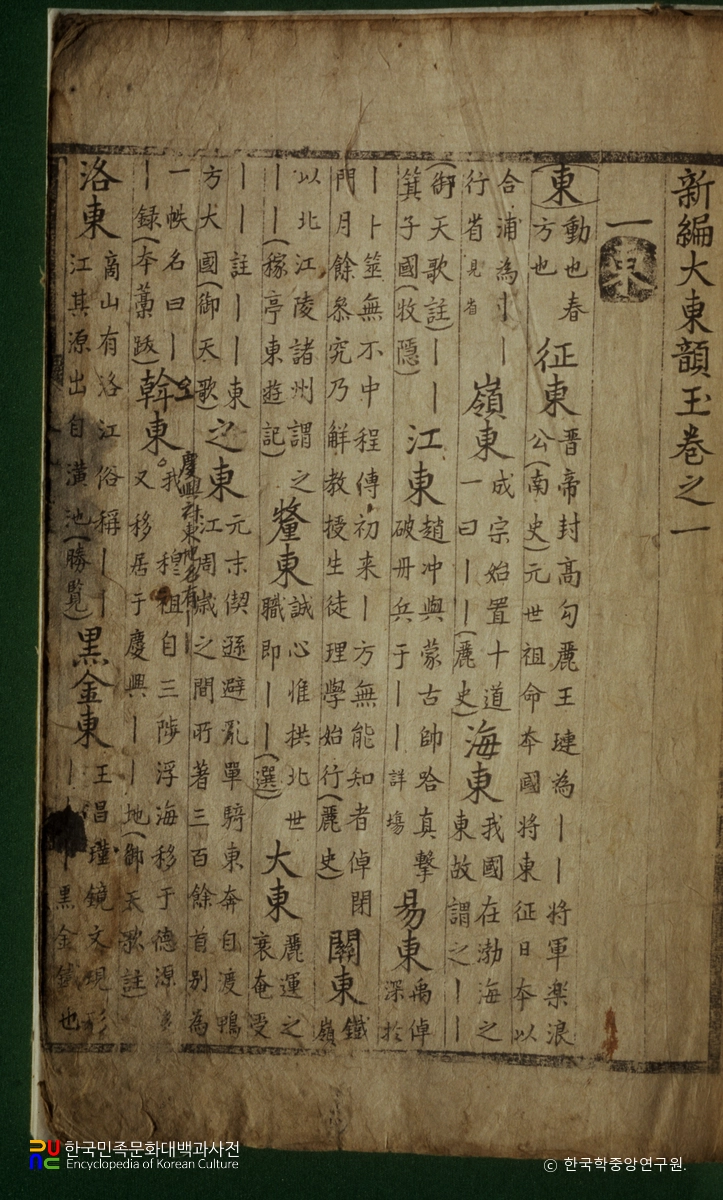 新編大東韻玉卷之一
一東
東
動也春
方也
征東
晋帝封高勾麗王璉為丨丨將軍楽浪
公(南史)元世祖命本國將東征日本以
合浦為丨丨
行省見省
嶺東
成宗始置十道
一曰丨丨(麗史)
海東
我國在渤海之
東故謂之丨丨
(御天歌註)丨丨
箕子國(牧隱)
江東
趙冲與蒙古帥哈真擊
破丹兵于丨丨詳塲
易東
禹倬
深於
丨卜筮無不中程傳初来丨方無能知者倬閉
門月餘叅究乃觧教授生徒理學始行(麗史)
關東
鐵
嶺
以北江陵諸州謂之
丨丨(稼亭東遊記)
釐東
誠心惟拱北世
職即丨丨(選)
大東
麗運之
衰奄受
丨丨註丨丨東
方大國(御天歌)
之東
元末偰遜避乱單騎東奔自渡鴨
江周歲之間所著三百餘首别為
一帙名曰丨
丨録(本藁跋)
斡東
我穆祖自三陟浮海移于德源
又移居于慶興丨丨地(御天歌註)
慶興社東地名有
洛東
商山有洛江俗稱丨丨
江其源出自潢池(勝覧)
黒金東
王昌瑾鏡文現形
丨丨黒金鐵也
한국민족문화대백과사전
Encyclopedia of Korean Culture
ⓒ 한국학중앙연구원.